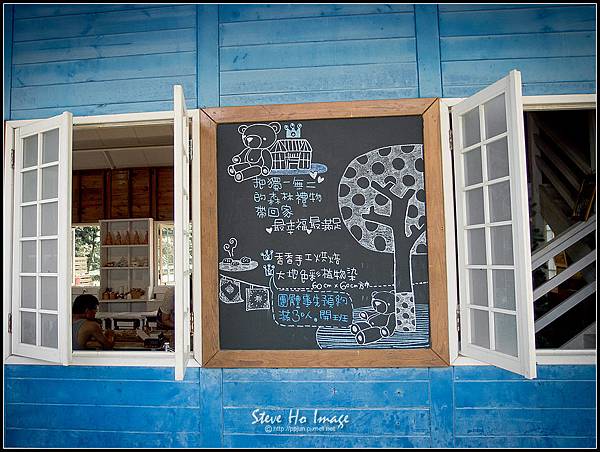 把獨一無二
的森林禮物
帶回家
最幸福最滿足
香香手工烘燒
大地色彩植物染
60cm×60cm
團體事先預約
滿30人開班
Steve Ho Image
©http://ppjun.pixnet.net